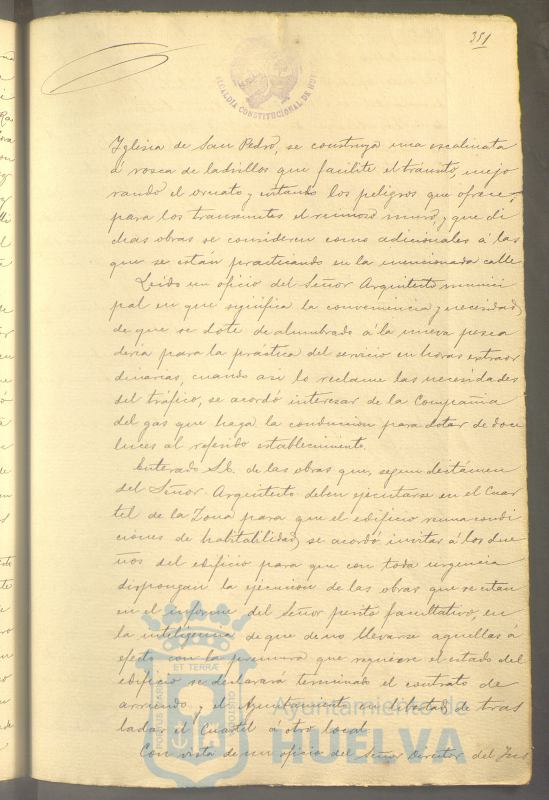 351
ALCALDIA CONSTITUCIONAL DE HUE
Yglesia de San Pedro, se construya una escalinata
á rosca de ladrillos que facilite el tránsito, mejo
rando el ornato y evitando los peligros que ofrece,
para los transeuntes el ruinoso muro, y que di
chas obras se consideren como adicionales á las
que se están practicando en la mencionada calle.
Leido un oficio del Señor Arquitecto munici
pal en que significa la conveniencia y necesidad,
de que se dote de alumbrado á la nueva pesca
deria para la práctica del servicio en horas extraor
dinarias, cuando asi lo reclame las necesidades
del tráfico, se acordó interesar de la Compañia
del gas que haga la conduccion para dotar de doce
luces al referido establecimiento.
Enterado S.E. de las obras que, segun dictámen
del Señor Arquitecto deben ejecutarse en el Cuar
tel de la Zona para que el edificio reuna condi
ciones de habitabilidad, se acordó invitar á los due
ños del edificio para que con toda urgencia
dispongan la ejecucion de las obras que se citan
en el informe del Señor perito facultativo, en
la inteligencia de que de no llevarse aquellas á
efecto con la premura que requiere el estado del
edificio se declarará terminado el contrato de
arriendo y el Ayuntamiento en libertad de tras
ladar el Cuartel á otro local.
Con vista de un oficio del Señor Director del Ins
PORTUS MARIS
ET TERRÆ
CUSTODIA
Ayuntamiento de
HUELVA